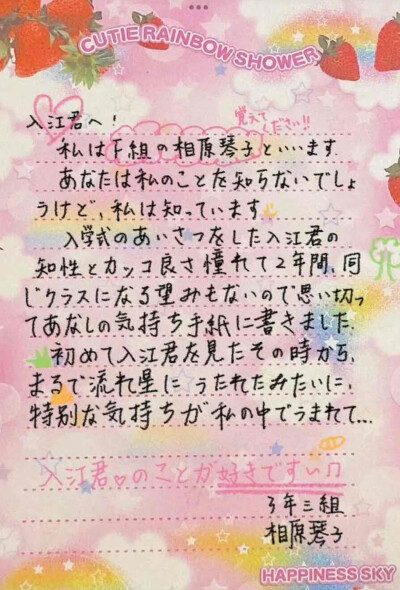 CUTIE RAINBOW SHOWER
入江君へ!
覚えて
ください!!
私はF組の相原琴子といいます.
あなたは私のことを知らないでしょ
うけど、私は知っています
入学式のあいさつをした入江君の
知性とカッコ良さ憧れて2年間、同
じクラスになる望みもないので思い切っ
てあなしの気持ち手紙に書きました.
初めて入江君を見たその時から,
まるで流れ星に うたれたみたいに,
特別な気持ちが私の中でうまれて...
入江君♡のことが好きです
3年三組
相原琴子
HAPPINESS SKY